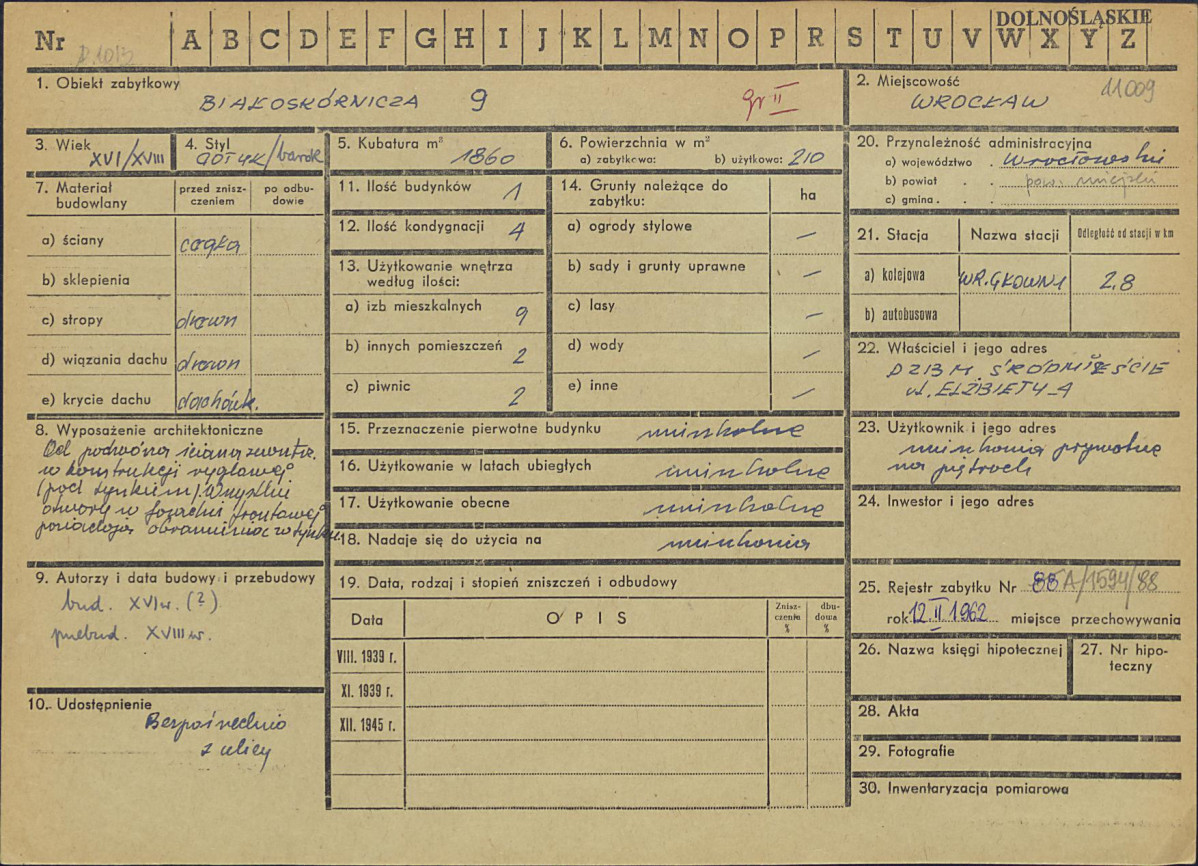 DOLNOŚLĄSKIE
Nr A B C D E F G H I J K L M N O P R S T U V W X Y Z
1. Obiekt zabytkowy
BIAŁOSKÓRNICZA 9 gr II
2. Miejscowość 11009
WROCŁAW
3. Wiek
XVI/XVIII
4. Styl
GOTYK/barok
5. Kubatura m³
1860
6. Powierzchnia w m²
a) zabytkowa: b) użytkowa: 210
20. Przynależność administracyjna
a) województwo Wrocławskie
b) powiat pow. miejski
c) gmina
7. Materiał budowlany
przed zniszczeniem
po odbudowie
a) ściany cegła
b) sklepienia
c) stropy drewn
d) wiązania dachu drewn
e) krycie dachu dachówk.
11. Ilość budynków 1
12. Ilość kondygnacji 4
13. Użytkowanie wnętrza według ilości:
a) izb mieszkalnych 9
b) innych pomieszczeń 2
c) piwnic 2
14. Grunty należące do zabytku: ha
a) ogrody stylowe —
b) sady i grunty uprawne —
c) lasy —
d) wody —
e) inne —
21. Stacja Nazwa stacji Odległość od stacji w km
a) kolejowa WR. GŁOWNY 2,8
b) autobusowa
22. Właściciel i jego adres
DZBM ŚRÓDMIEŚCIE
ul. ELŻBIETY 4
8. Wyposażenie architektoniczne
Od podwórza ściana zewnętrz.
w konstrukcji ryglowej
(pod tynkiem). Wszystkie
otwory w fasadzie frontowej
posiadają obramienia w tynku
15. Przeznaczenie pierwotne budynku mieszkalne
16. Użytkowanie w latach ubiegłych mieszkalne
17. Użytkowanie obecne mieszkalne
18. Nadaje się do użycia na mieszkania
23. Użytkownik i jego adres
mieszkania prywatne
na piętrach
24. Inwestor i jego adres
9. Autorzy i data budowy i przebudowy
bud. XVI w. (?)
przebud. XVIII w.
19. Data, rodzaj i stopień zniszczeń i odbudowy
Data OPIS Zniszczenia % dbudowa %
VIII. 1939 r.
XI. 1939 r.
XII. 1945 r.
25. Rejestr zabytku Nr A/1594/88
rok 12.II.1962 miejsce przechowywania
26. Nazwa księgi hipotecznej
27. Nr hipoteczny
10. Udostępnienie
Bezpośrednio
z ulicy
28. Akta
29. Fotografie
30. Inwentaryzacja pomiarowa